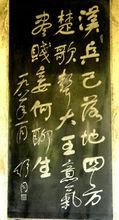 漢兵已略地四方
楚歌聲大王意氣
盡賤妾何聊生
舒同